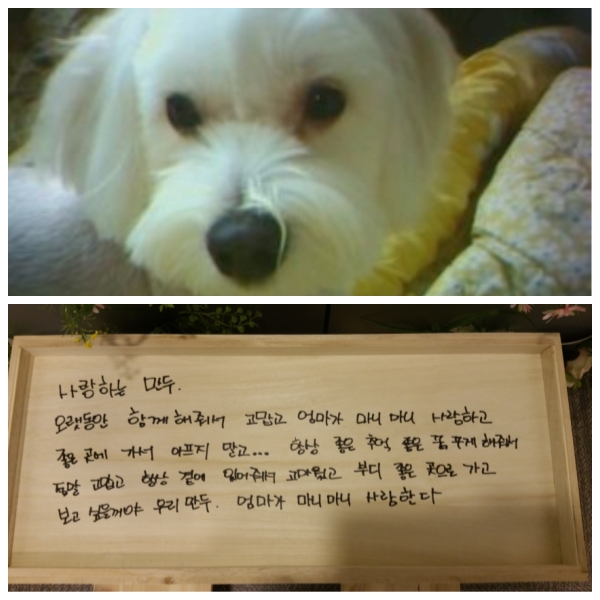 사랑하는 만두.
오랫동안 함께 해줘서 고맙고 엄마가 마니 마니 사랑하고
좋은 곳에 가서 아프지 말고... 항상 좋은 추억 좋은 꿈 꾸게 해줘서
정말 고맙고 항상 곁에 있어줘서 고마웠고 부디 좋은 곳으로 가고
보고 싶을꺼야 우리 만두. 엄마가 마니 마니 사랑한다